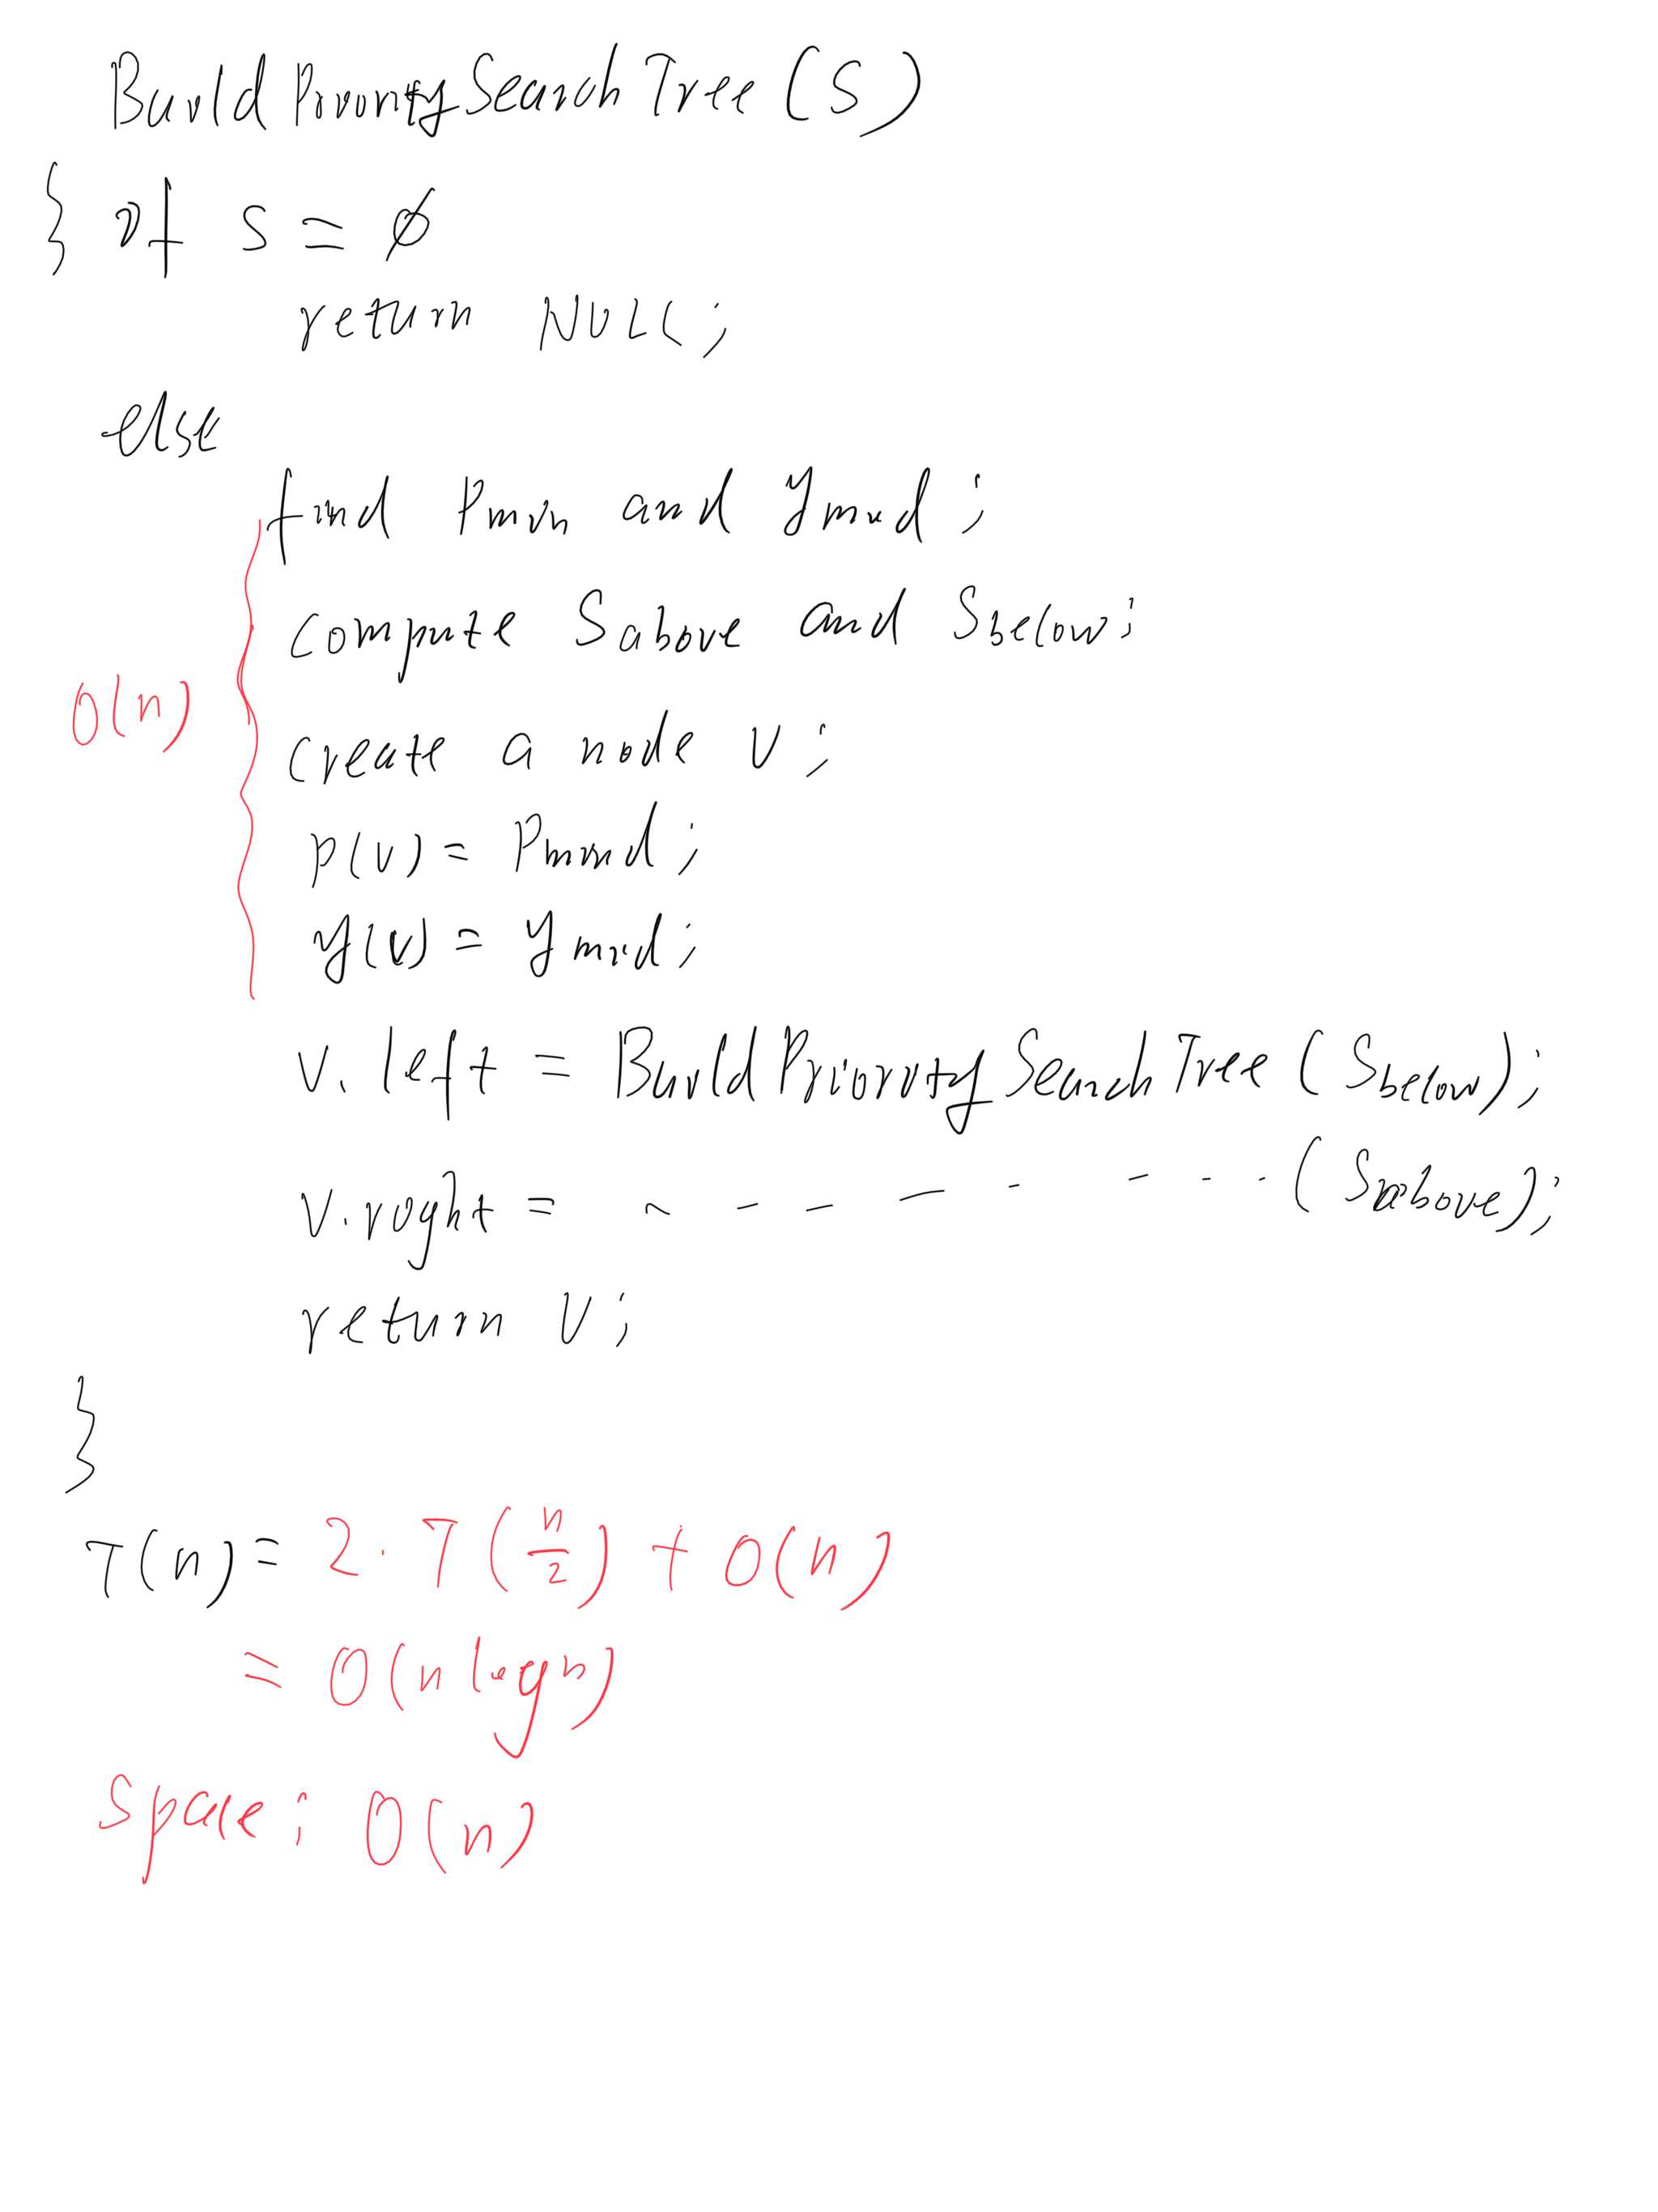 Build Priority Search Tree (S)
{ if S = ∅
return NULL;
else
find Pmin and ymid;
compute Sabove and Sbelow;
O(n)
create a node v;
p(v) = Pmind;
y(v) = ymid;
v.left = Build Priority Search Tree (Sbelow);
v.right = ~ - - - - - - - (Sabove);
return v;
}
T(n) = 2 · T(n/2) + O(n)
= O(n log n)
Space: O(n)